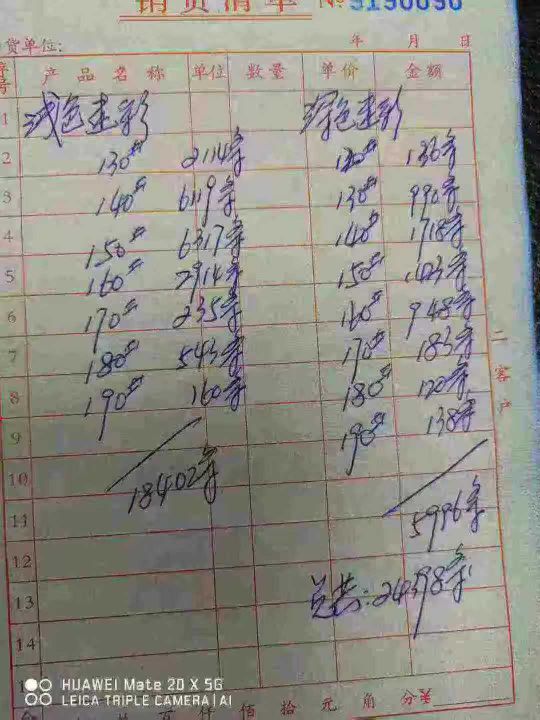 销货清单 № 9190090
货单位: 年 月 日
序号 产品名称 单位 数量 单价 金额
1 浅色迷彩 深色迷彩
2 130# 2114条 120# 136条
3 140# 6119条 130# 990条
4 150# 6317条 140# 1718条
5 160# 2914条 150#
6 170# 235条 160# 948条
7 180# 543条 170# 183条
8 190# 160条 180# 120条
9 190# 138条
10 18402条
11 5996条
12
13 总共:24398条
14
二客户
HUAWEI Mate 20 X 5G
LEICA TRIPLE CAMERA | AI
佰 拾 元 角 分 ¥